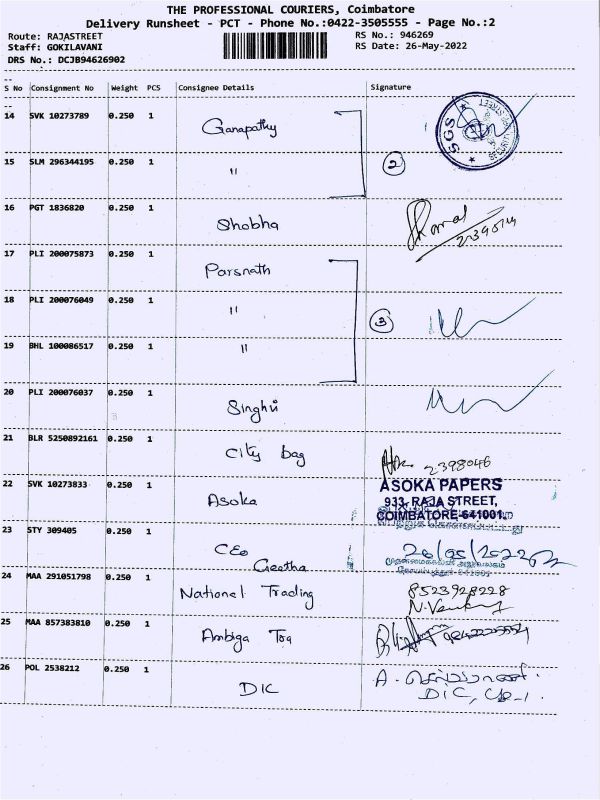 THE PROFESSIONAL COURIERS, Coimbatore
Delivery Runsheet - PCT - Phone No.:0422-3505555 - Page No.:2
Route: RAJASTREET
RS No.: 946269
Staff: GOKILAVANI
RS Date: 26-May-2022
DRS No.: DCJB94626902
S No Consignment No Weight PCS Consignee Details Signature
14 SVK 10273789 0.250 1 Ganapathy
SGS SECURITY
15 SLM 296344195 0.250 1 " 2
16 PGT 1836820 0.250 1 Shobha
17 PLI 200075873 0.250 1 Parsnath
18 PLI 200076049 0.250 1 " 3
19 BHL 100086517 0.250 1 "
20 PLI 200076037 0.250 1 Singhvi
21 BLR 5250892161 0.250 1 City bag 2398046
22 SVK 10273833 0.250 1 Asoka
ASOKA PAPERS
933, RAJA STREET,
COIMBATORE-641001.
23 STY 309405 0.250 1 CEO
Geetha
26/05/2022
24 MAA 291051798 0.250 1 National Trading 8523928228
25 MAA 857383810 0.250 1 Ambiga Tea
26 POL 2538212 0.250 1 DIC
DIC,